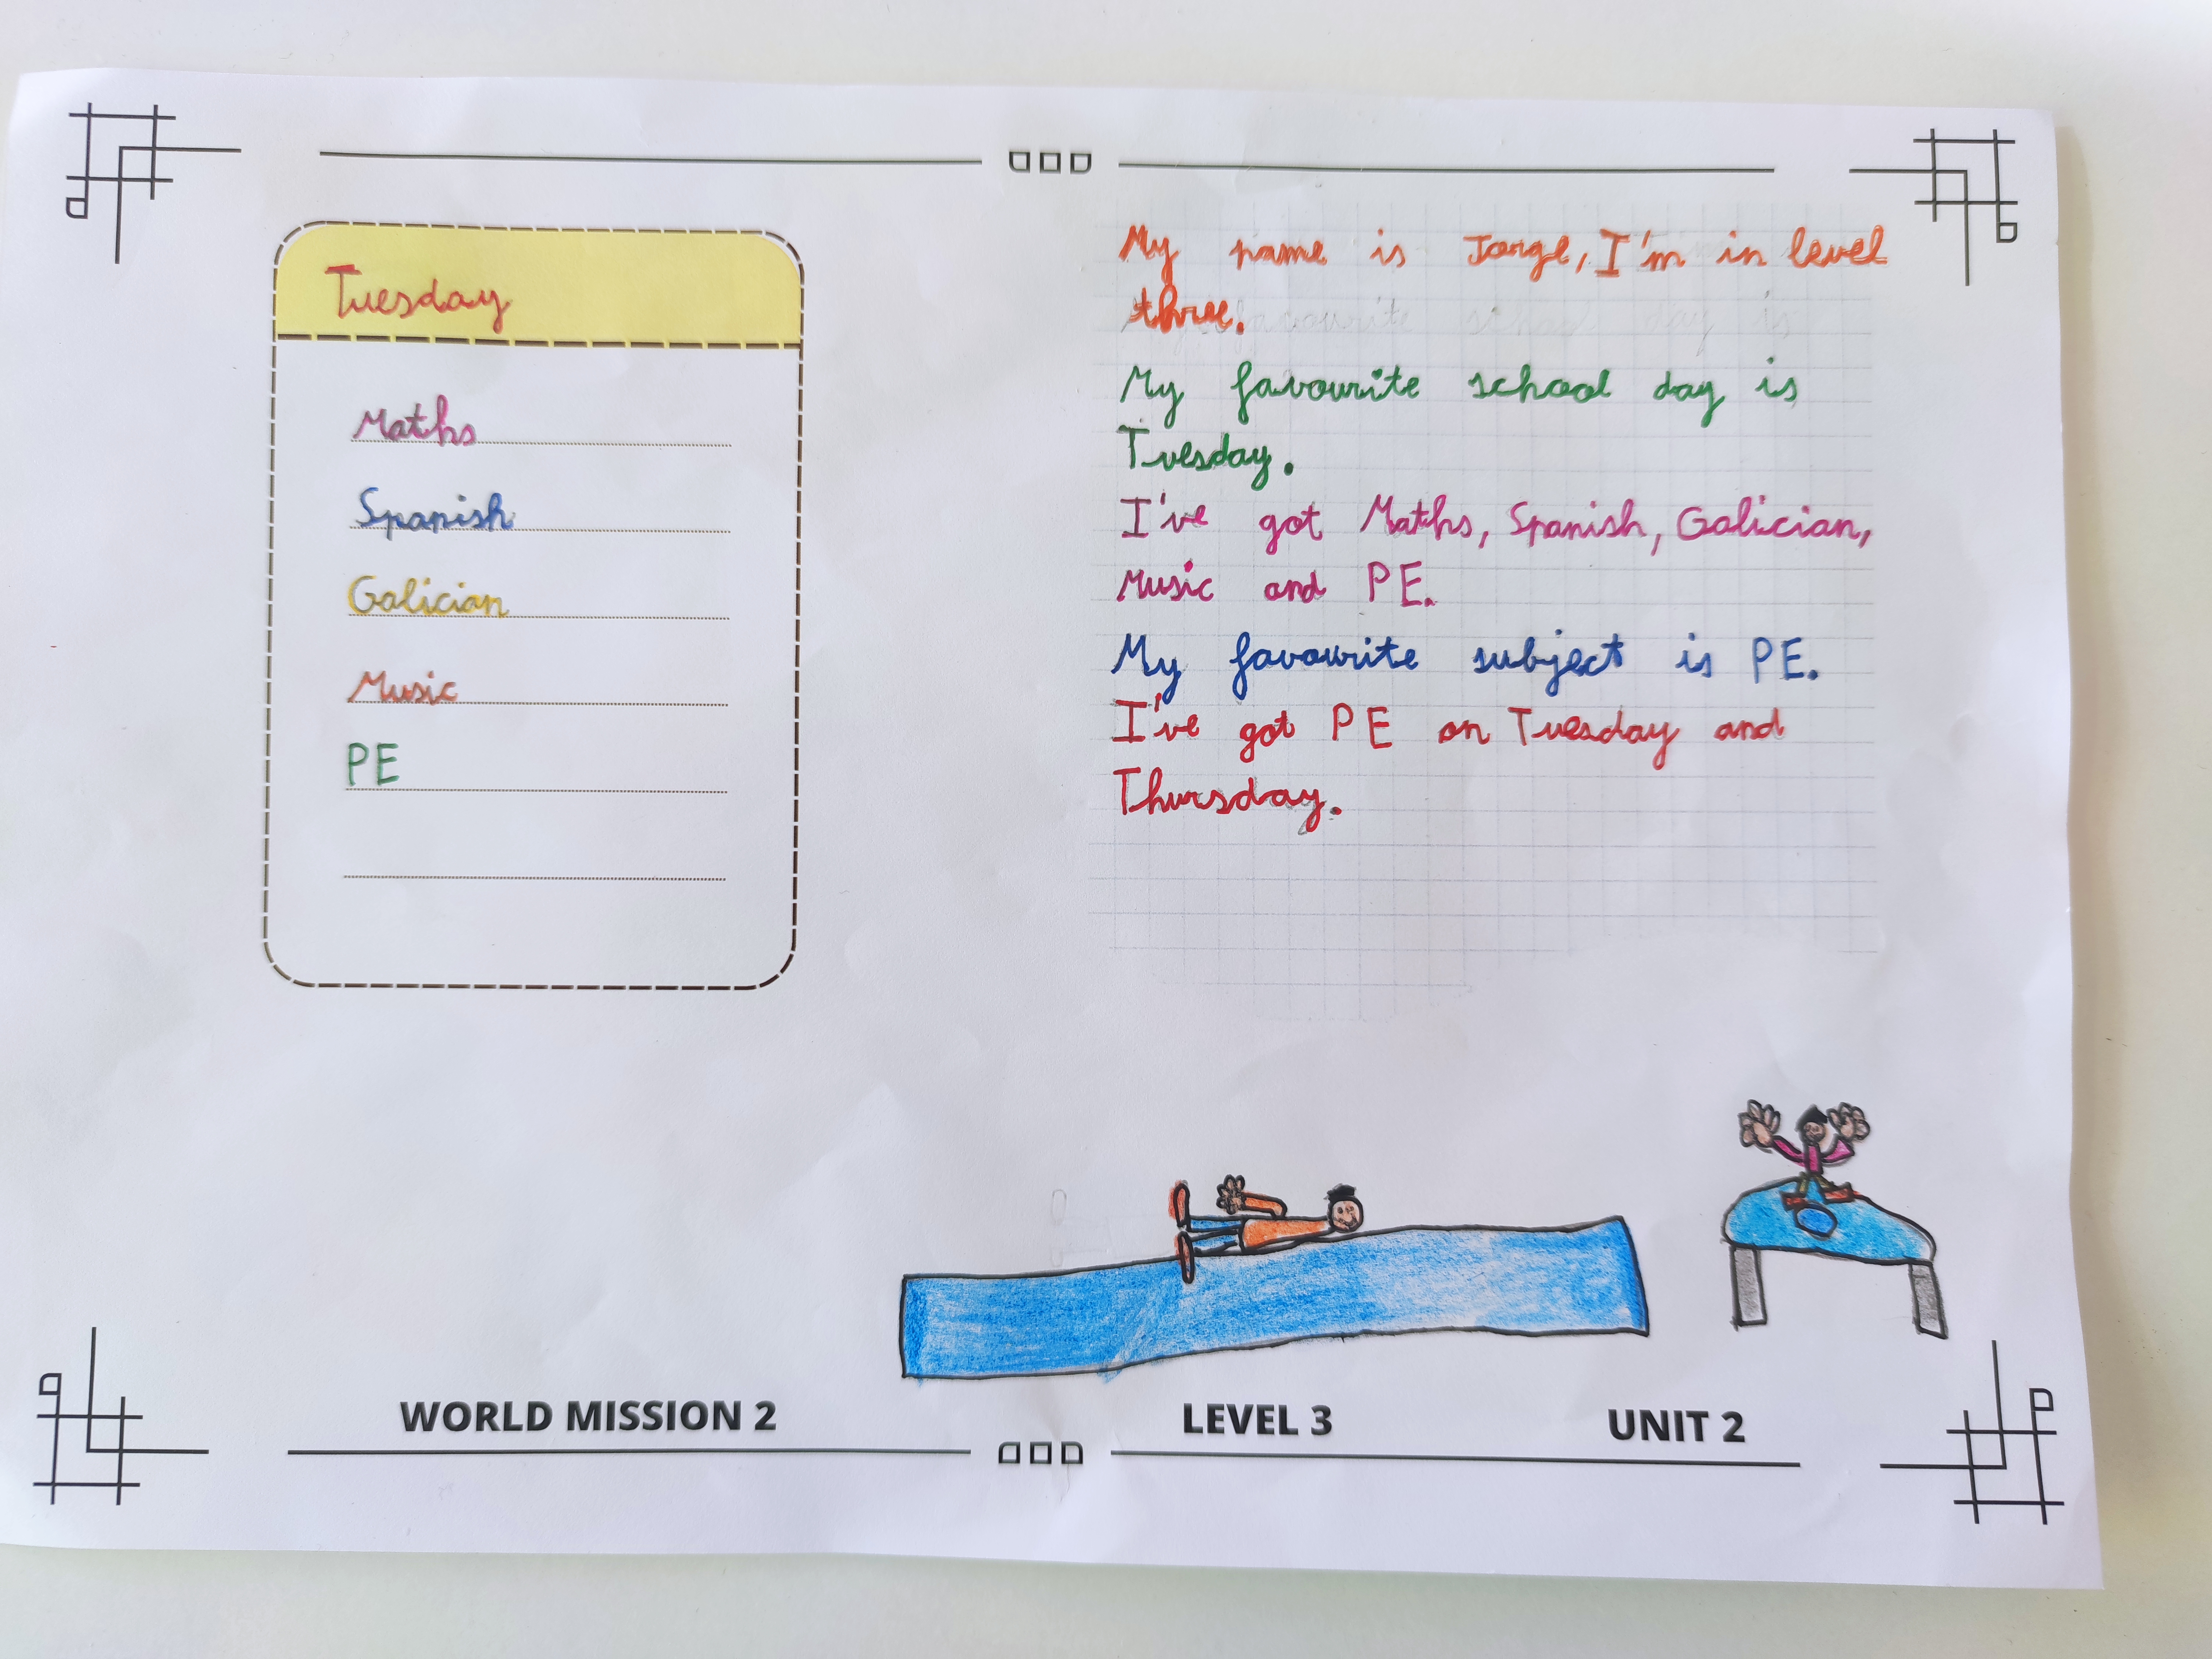 Tuesday
Maths
Spanish
Galician
Music
PE
My name is Jorge, I'm in level
three.
My favourite school day is
Tuesday.
I've got Maths, Spanish, Galician,
Music and PE.
My favourite subject is PE.
I've got PE on Tuesday and
Thursday.
WORLD MISSION 2 LEVEL 3 UNIT 2